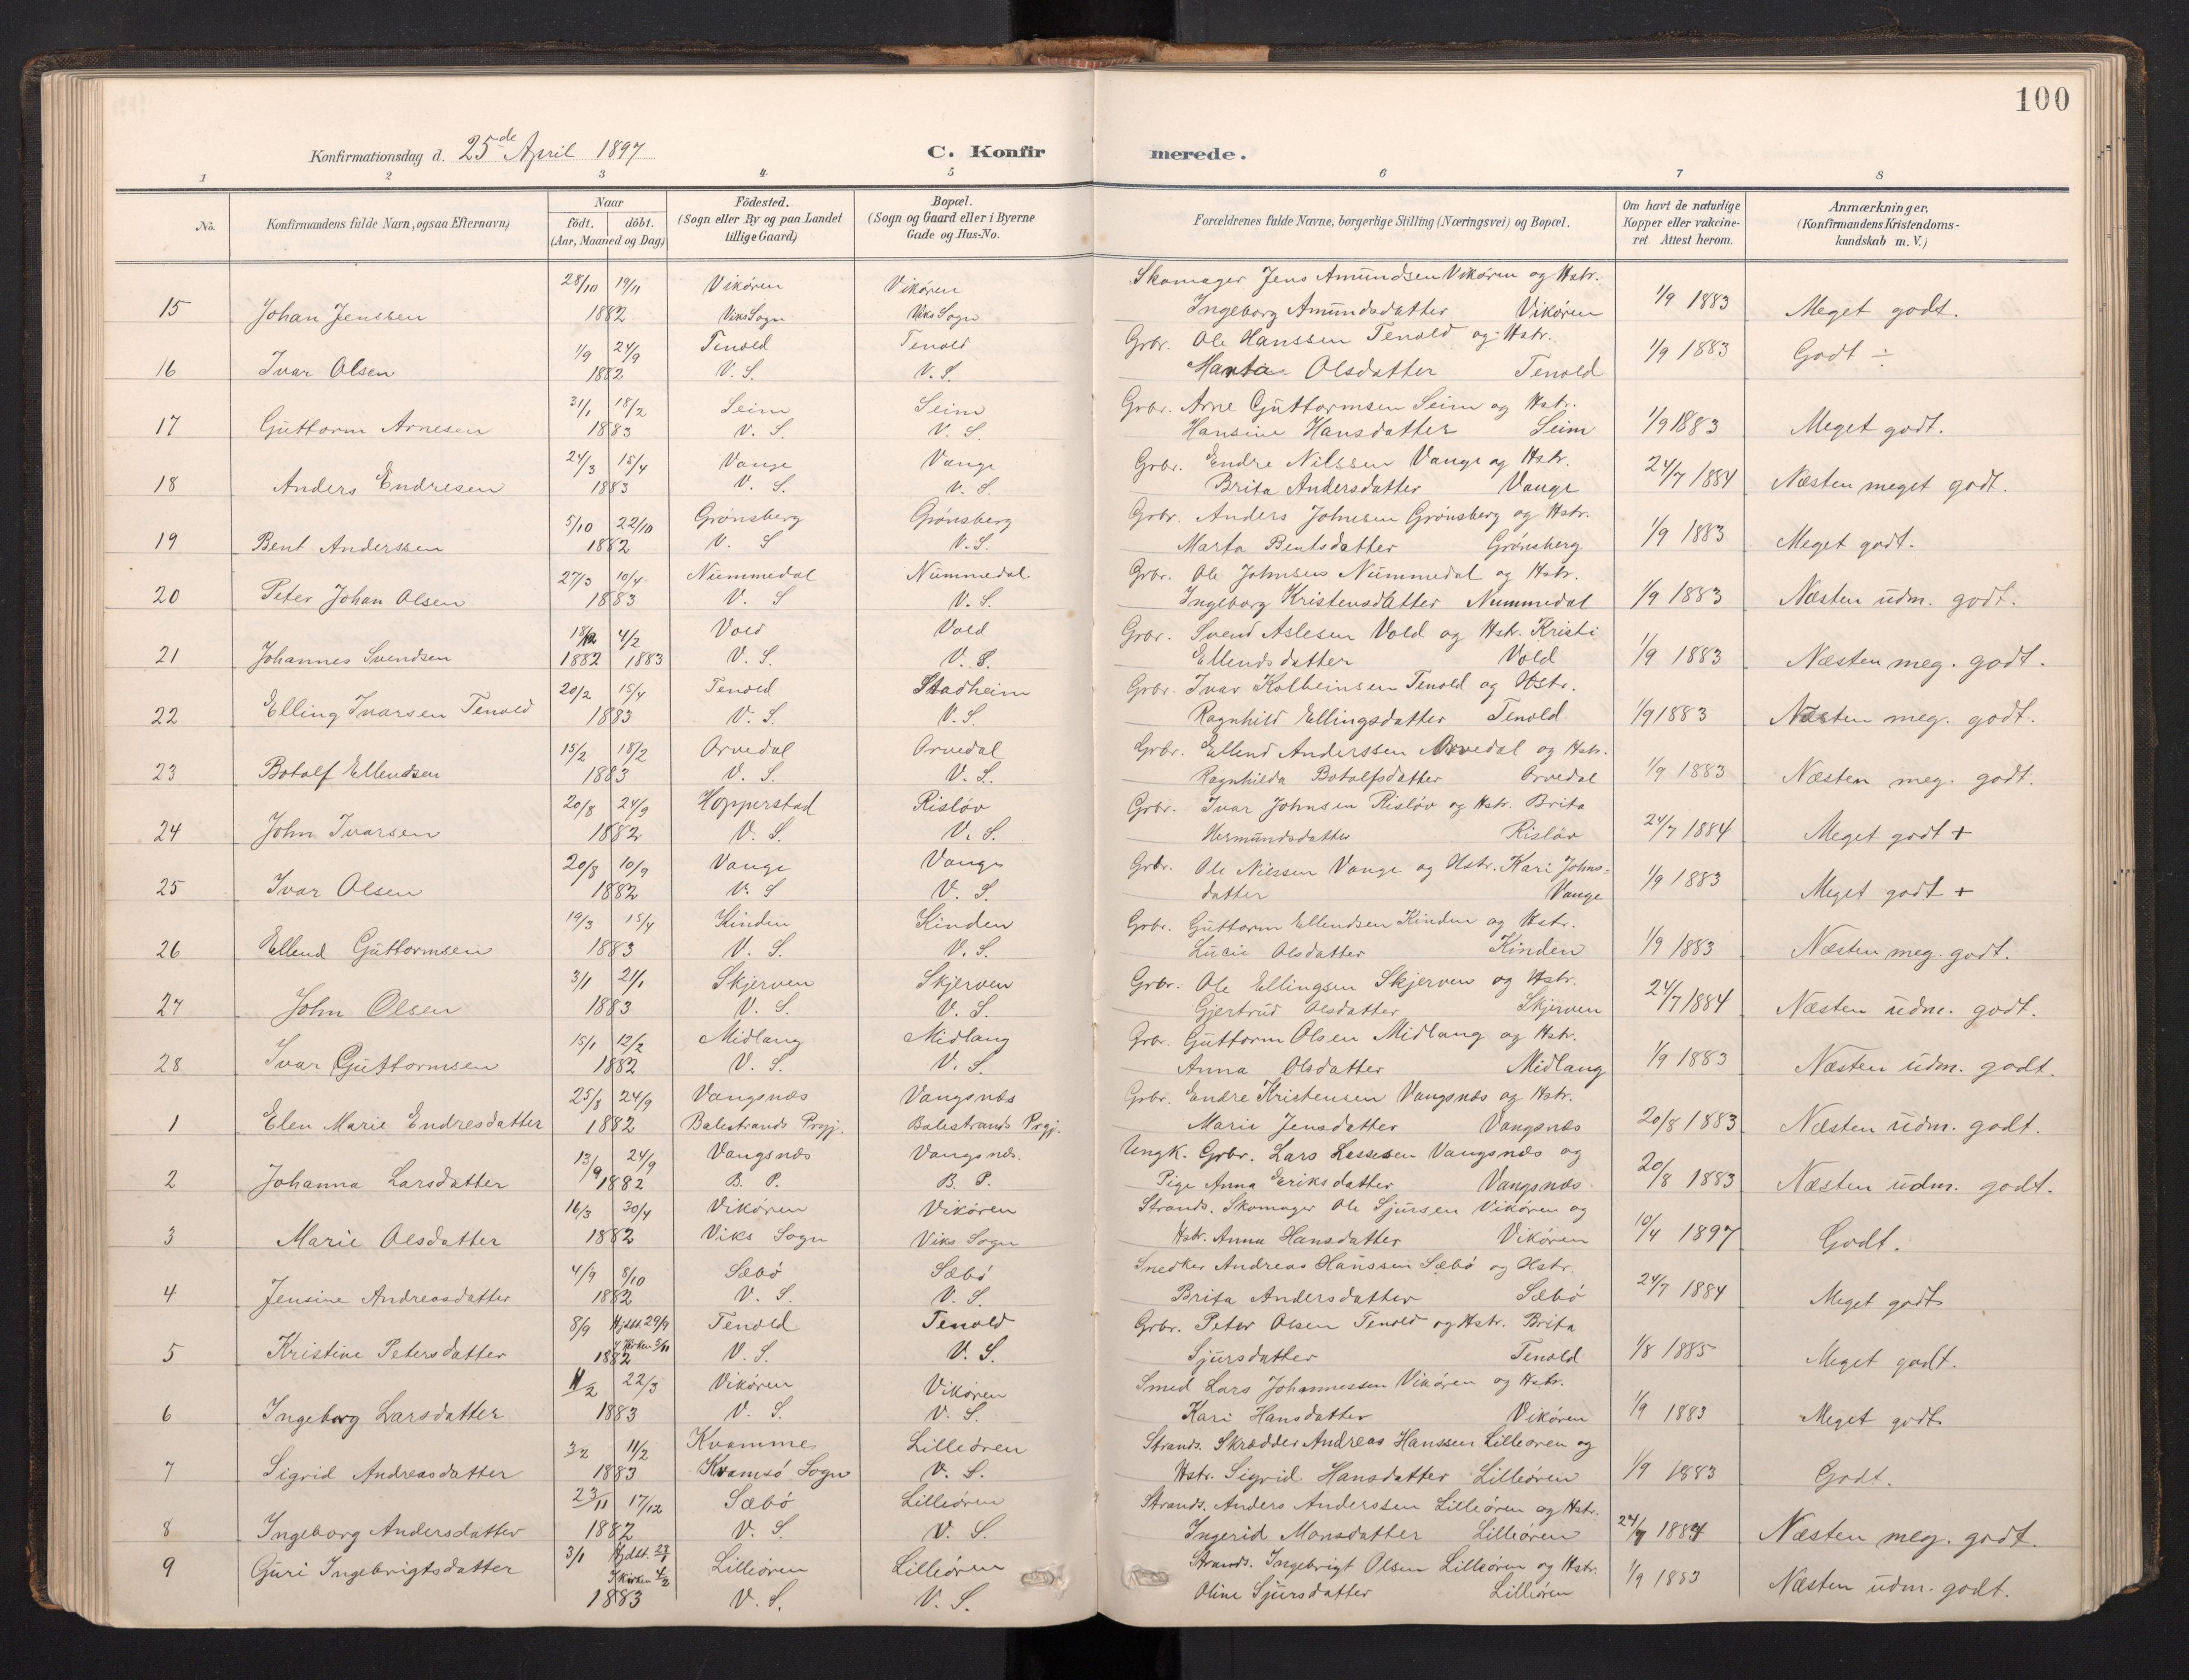 100
Konfirmationsdag d. 25de April 1897
C. Konfirmerede.
1 2 3 4 5 6 7 8
No. Konfirmandens fulde Navn, ogsaa Efternavn) Naar födt. döbt. (Aar, Maaned og Dag) Födested. (Sogn eller By og paa Landet tillige Gaard) Bopæl. (Sogn og Gaard eller i Byerne Gade og Hus-No. Forældrenes fulde Navne, borgerlige Stilling (Næringsvei) og Bopæl. Om havt de naturlige Kopper eller vakcineret. Attest herom. Anmærkninger. (Konfirmandens Kristendomskundskab m. V.)
28/10 19/11 Vikören Vikören Skomager Jens Amundsen Vikören og Hstr.
15 Johan Jenssen 1882 Viks Sogn Viks Sogn Ingeborg Amundsdatter Vikören 1/9 1883 Meget godt.
1/9 24/9 Tenold Tenold Grbr. Ole Hanssen Tenold og Hstr.
16 Ivar Olsen 1882 V. S. V. S. Marta Olsdatter Tenold 1/9 1883 Godt ÷
31/1 18/2 Seim Seim Grbr. Arne Guttormsen Seim og Hstr.
17 Guttorm Arnesen 1883 V. S. V. S. Hansine Hansdatter Seim 1/9 1883 Meget godt.
24/3 15/4 Vange Vange Grbr. Endre Nilssen Vange og Hstr.
18 Anders Endresen 1883 V. S. V. S. Brita Andersdatter Vange 24/7 1884 Næsten meget godt.
5/10 22/10 Grönsberg Grönsberg Grbr. Anders Johnsen Grönsberg og Hstr.
19 Bent Anderssen 1882 V. S V. S. Marta Bentsdatter Grönsberg 1/9 1883 Meget godt.
27/3 10/4 Nummedal Nummedal Grbr. Ole Johnsen Nummedal og Hstr.
20 Peter Johan Olsen 1883 V. S V. S. Ingeborg Kristensdatter Nummedal 1/9 1883 Næsten udm. godt.
18/12 4/2 Vold Vold Grbr. Svend Aslesen Vold og Hstr. Kristi
21 Johannes Svendsen 1882 1883 V. S. V. S. Ellendsdatter Vold 1/9 1883 Næsten meg. godt.
20/2 15/4 Tenold Stadheim Grbr. Ivar Kolbeinsen Tenold og Hstr.
22 Elling Ivarsen Tenold 1883 V. S. V. S. Ragnhild Ellingsdatter Tenold 1/9 1883 Næsten meg. godt.
15/2 18/2 Orvedal Orvedal Grbr. Ellend Anderssen Orvedal og Hstr.
23 Botolf Ellendsen 1883 V. S. V. S. Ragnhilda Botolfsdatter Orvedal 1/9 1883 Næsten meg. godt.
20/8 24/9 Hopperstad Rislöv Grbr. Ivar Johnsen Rislöv og Hstr. Brita
24 John Ivarsen 1882 V. S. V. S. Hermundsdatter Rislöv 24/7 1884 Meget godt +
20/8 10/9 Vange Vange Grbr. Ole Nilssen Vange og Hstr. Kari Johns=
25 Ivar Olsen 1882 V. S V. S. datter Vange 1/9 1883 Meget godt +
19/3 15/4 Kinden Kinden Grbr. Guttorm Ellendsen Kinden og Hstr.
26 Ellend Guttormsen 1883 V. S. V. S. Lucie Olsdatter Kinden 1/9 1883 Næsten meg. godt.
3/1 21/1 Skjerven Skjerven Grbr. Ole Ellingsen Skjerven og Hstr.
27 John Olsen 1883 V. S. V. S. Gjertrud Olsdatter Skjerven 24/7 1884 Næsten udm. godt.
15/1 12/2 Midlang Midlang Grbr. Guttorm Olsen Midlang og Hstr.
28 Ivar Guttormsen 1882 V. S. V. S. Anna Olsdatter Midlang 1/9 1883 Næsten udm. godt.
25/8 24/9 Vangsnæs Vangsnæs Grbr. Endre Kristensen Vangsnæs og Hstr.
1 Elen Marie Endresdatter 1882 Balestrands Prgj. Balestrands Prgj. Marie Jensdatter Vangsnæs 20/8 1883 Næsten udm. godt.
13/9 24/9 Vangsnæs Vangsnæs. Ungk. Grbr. Lars Lassesen Vangsnæs og
2 Johanna Larsdatter 1882 B. P. B. P. Pige Anna Eriksdatter Vangsnæs. 20/8 1883 Næsten udm. godt.
16/3 30/4 Vikören Vikören Strands. Skomager Ole Sjursen Vikören og
3 Marie Olsdatter 1882 Viks Sogn Viks Sogn Hstr. Anna Hansdatter Vikören 10/4 1897 Godt.
4/9 8/10 Sæbö Sæbö Snedker Andreas Hanssen Sæbö og Hstr.
4 Jensine Andreasdatter 1882 V. S. V. S. Brita Andersdatter Sæbö 24/7 1884 Meget godt
8/9 Hjdbt. 29/9 Tenold Tenold Grbr. Peter Olsen Tenold og Hstr. Brita
5 Kristine Petersdatter 1882 I Kirken 5/11 V. S. V. S. Sjursdatter Tenold 1/8 1885 Meget godt.
11/2 22/3 Vikören Vikören Smed Lars Johannessen Vikören og Hstr.
6 Ingeborg Larsdatter 1883 V. S. V. S. Kari Hansdatter Vikören 1/9 1883 Meget godt
3/2 11/2 Kvamme Lilleören Strands. Skrædder Andreas Hanssen Lilleören og
7 Sigrid Andreasdatter 1883 Kvamsö Sogn V. S. Hstr. Sigrid Hansdatter Lilleören 1/9 1883 Godt.
23/11 17/12 Sæbö Lilleören Strands. Anders Anderssen Lilleören og Hstr.
8 Ingeborg Andersdatter 1882 V. S. V. S. Ingerid Monsdatter Lilleören 24/7 1884 Næsten meg. godt.
3/1 Hjdbt. 23/1 Lilleören Lilleören Strands. Ingebrigt Olsen Lilleören og Hstr.
9 Guri Ingebrigtsdatter I Kirken 4/2 1883 V. S. V. S. Oline Sjursdatter Lilleören 1/9 1883 Næsten udm. godt.